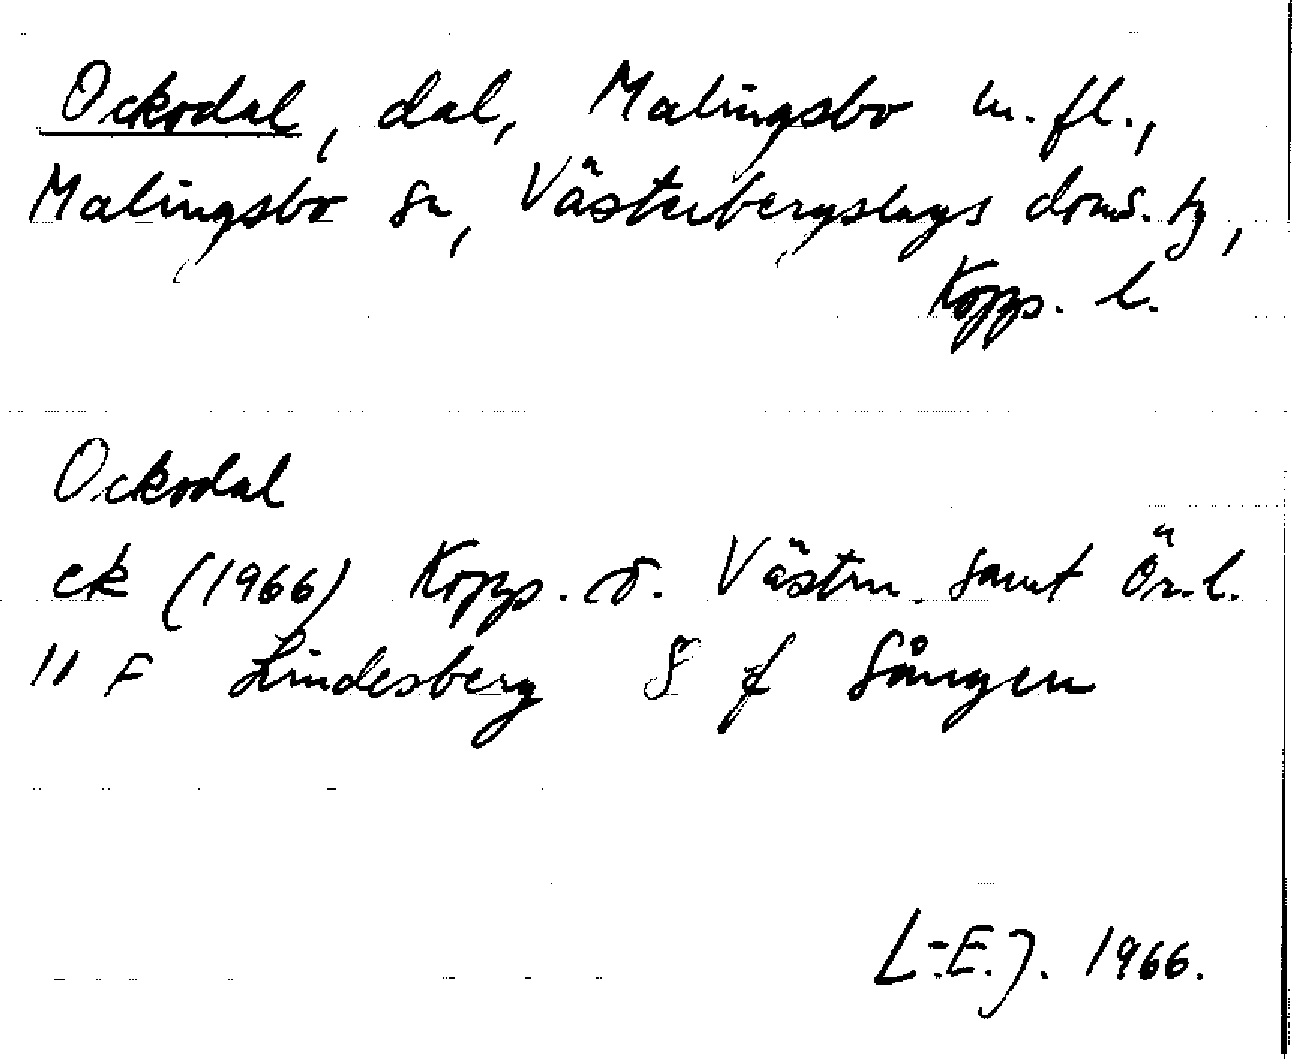 Ockodal, dal, Malingsbo m.fl.,
Malingsbo sn, Västerbergslags doms. tg,
Kopps. l.
Ockodal
ek (1966) Kopps. o. Västm. samt Ör.l.
11 F Lindesberg 8 f Sången
L-E.J. 1966.